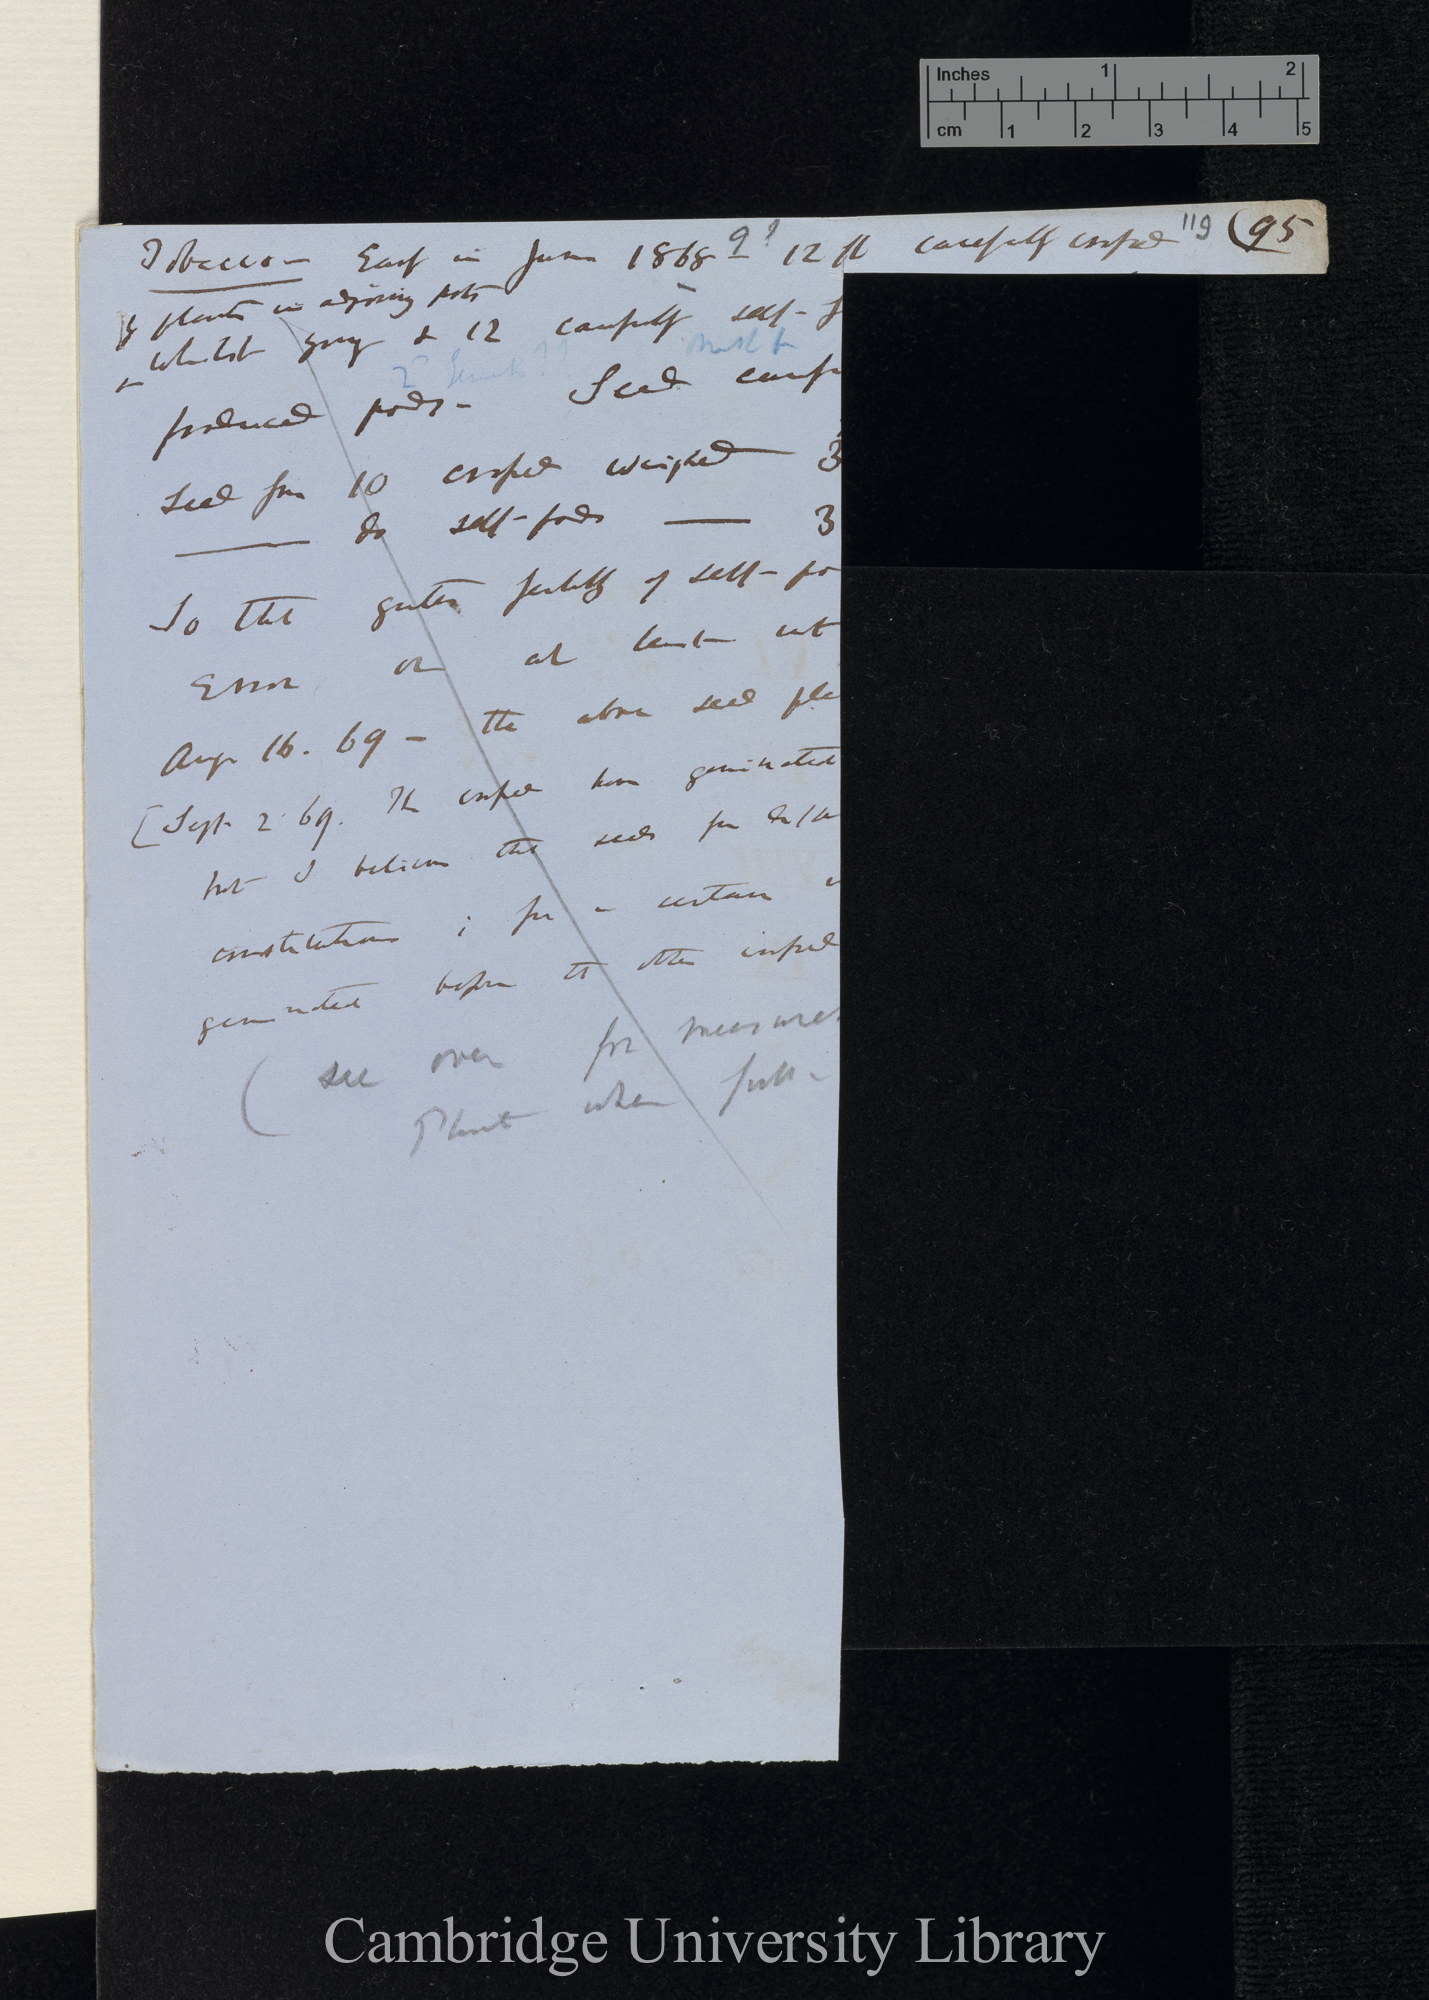 Inches 1 2
cm 1 2 3 4 5
Tobacco — Early in June 1868 9? 12 fl carefully crossed 119 (95
plants in adjoining pots
whilst young & 12 carefully self-f
must be
produced pods — Seed caref
Seed from 10 crossed weighed 3
——— do self-pods —— 3
So that greater fertility of self-po
Error or at least not
Aug 16. 69 — the above seed pla
[Sept 2. 69. The crossed have germinated
but I believe that seeds
constitutions ; for a certain
germinated before the other crossed
(see over for measure
Plant when full-
Cambridge University Library